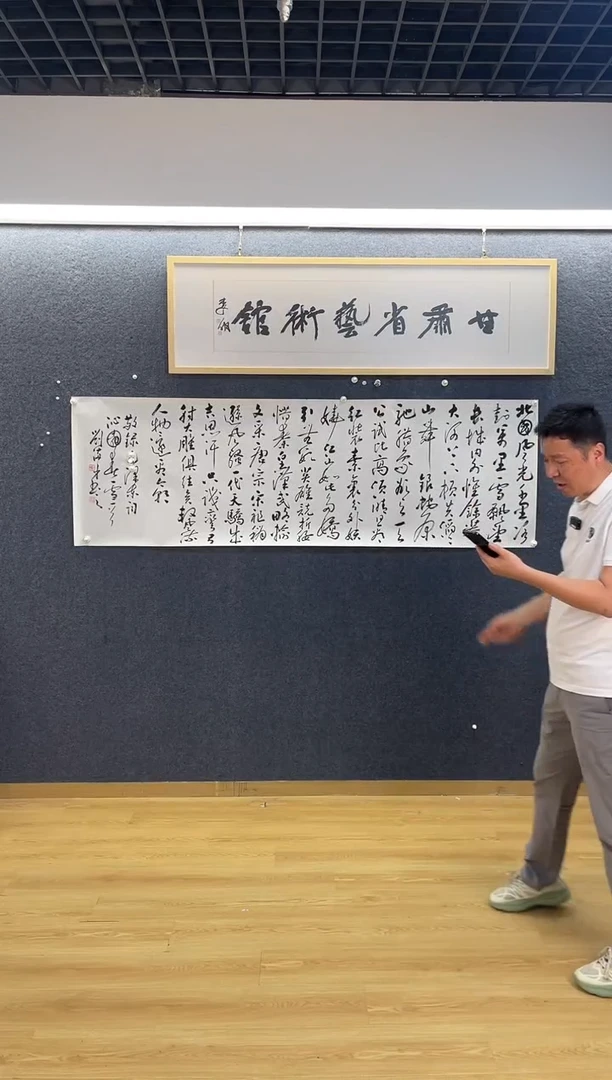 甘肅省藝術館
北國風光千里冰
封萬里雪飄望
長城內外惟餘莽
大河上下頓失滔滔
山舞銀蛇原
馳蠟象欲與天
公試比高須晴日看
紅裝素裹分外妖
嬈江山如此多嬌
引無數英雄競折腰
惜秦皇漢武略輸
文采唐宗宋祖稍
遜風騷一代天驕成
吉思汗只識彎弓
射大雕俱往矣數風流
人物還看今朝
敬錄毛澤東詞
沁園春雪一首